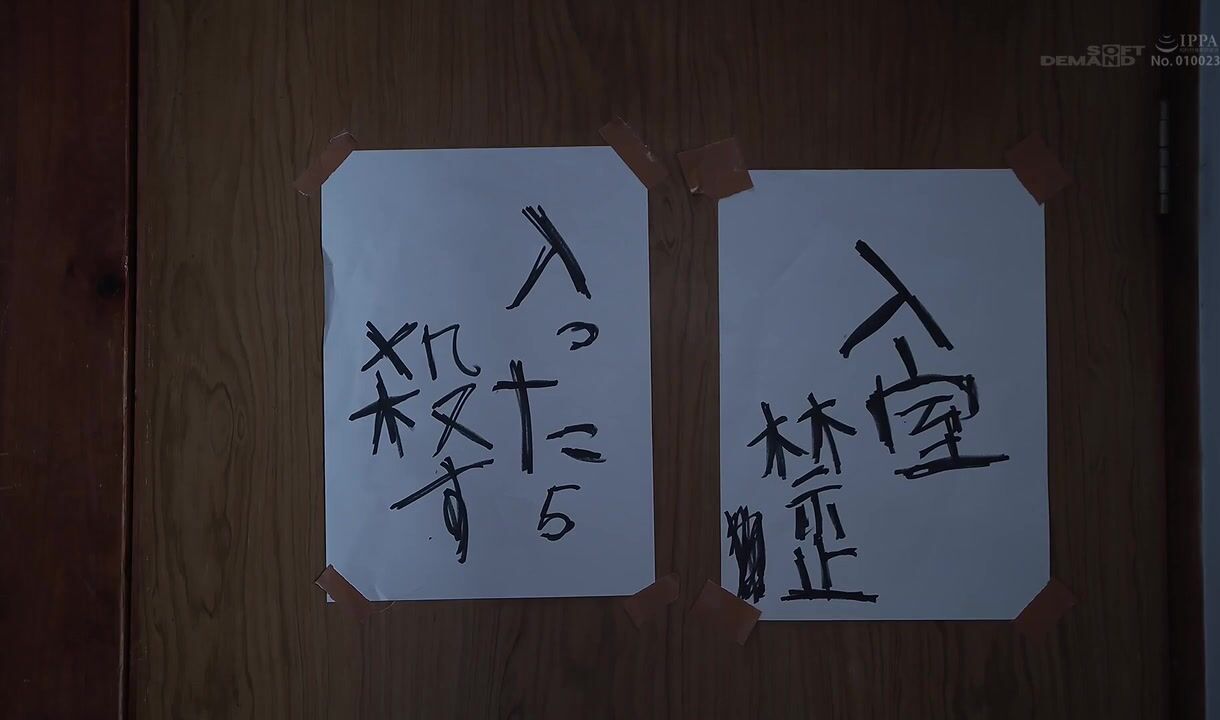 入室
禁止
入ったら
殺す
SOFT
DEMAND
IPPA
No.010023